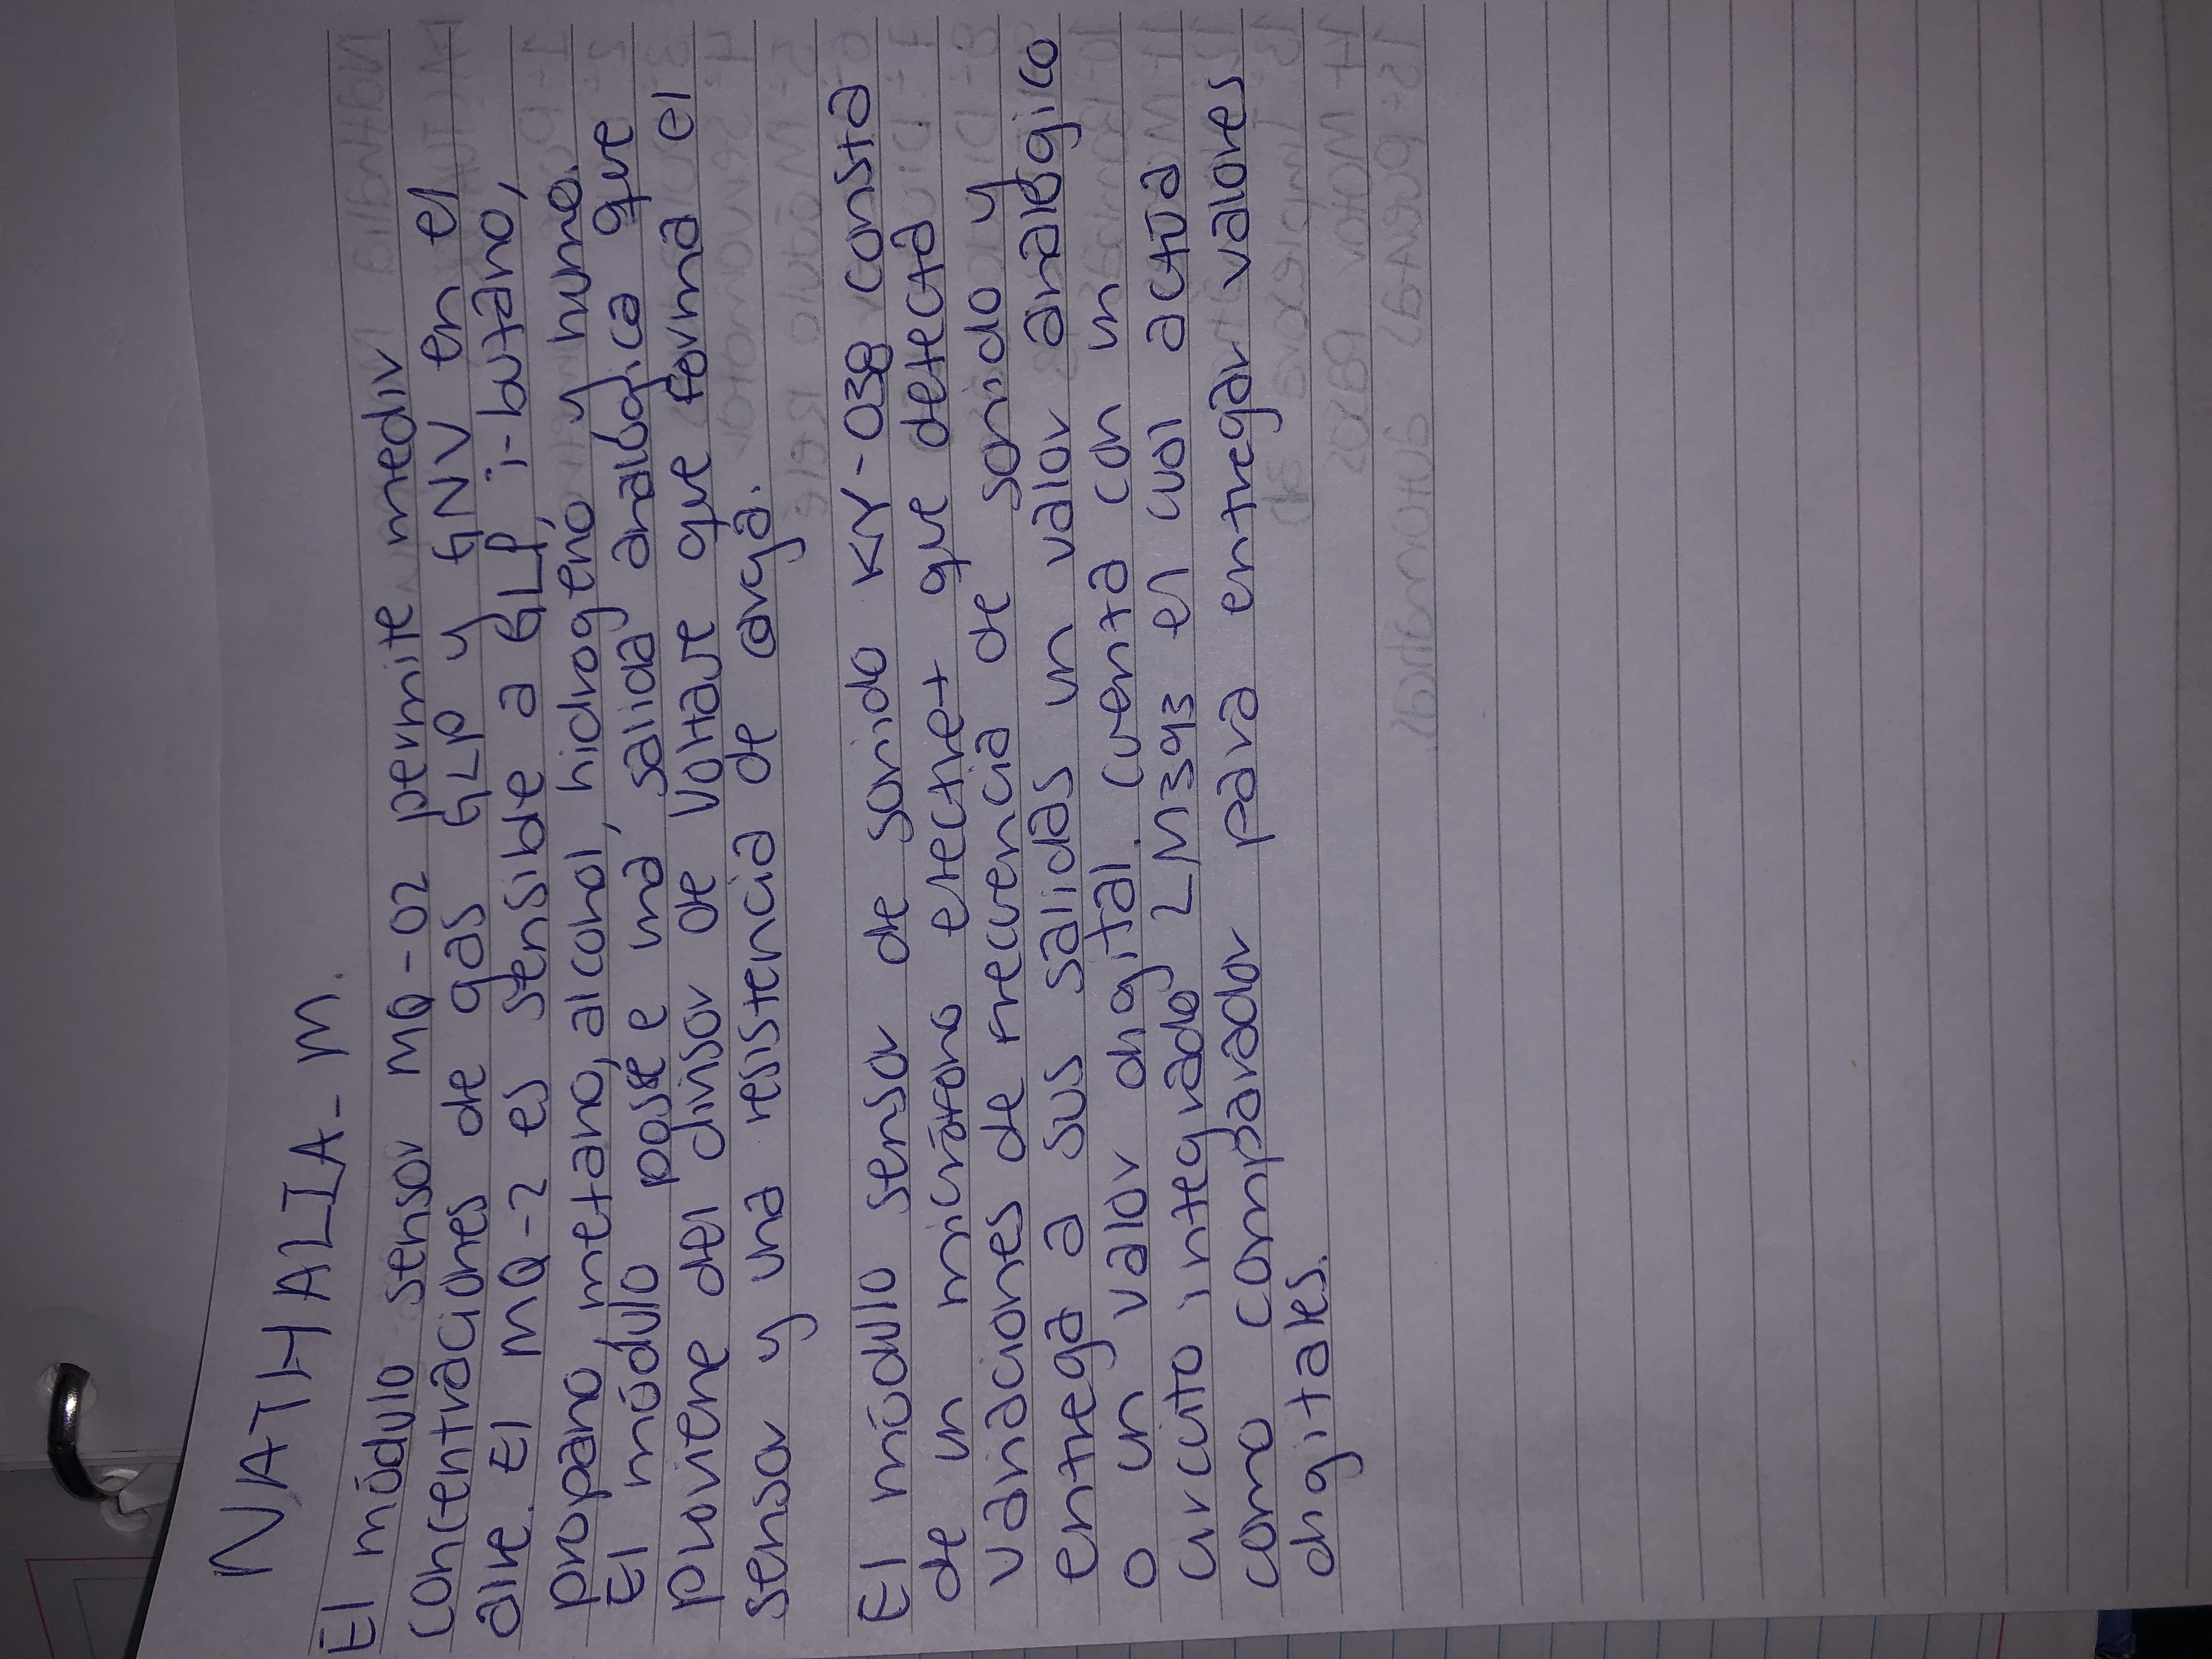 NATHALIA-M.
El módulo sensor MQ-02 permite medir
concentraciones de gas GLP y GNV en el
aire. El MQ-2 es sensible a GLP, i-butano,
propano, metano, alcohol, hidrogeno y humo.
El módulo posee una salida analógica que
proviene del divisor de voltaje que forma el
sensor y una resistencia de carga.
El módulo sensor de sonido KY-038 consta
de un micrófono electret que detecta
variaciones de frecuencia de sonido y
entrega a sus salidas un valor analógico
o un valor digital. Cuenta con un
circuito integrado LM393 el cual actúa
como comparador para entregar valores
digitales.